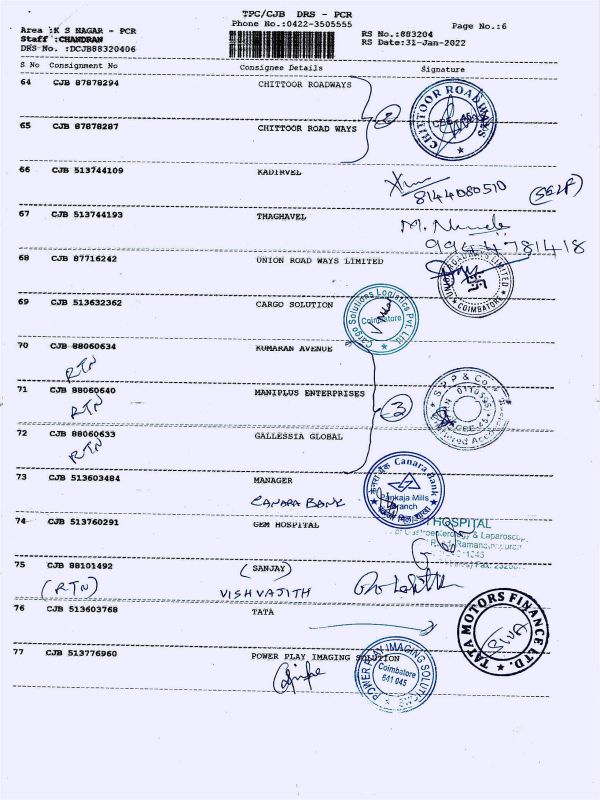 TPC/CJB DRS - PCR
Phone No.:0422-3505555
Page No.:6
Area :K S NAGAR - PCR
Staff :CHANDRAN
DRS No. :DCJB88320406
RS No.:883204
RS Date:31-Jan-2022
S No Consignment No Consignee Details Signature
64 CJB 87878294 CHITTOOR ROADWAYS
CHITTOOR ROADWAYS
2
65 CJB 87878287 CHITTOOR ROAD WAYS
66 CJB 513744109 KADIRVEL
8144080510 (SELF)
67 CJB 513744193 THAGHAVEL
9944781418
68 CJB 87716242 UNION ROAD WAYS LIMITED
COIMBATORE
69 CJB 513632362 CARGO SOLUTION
Cargo Solutions Logistics Pvt. Ltd.
Coimbatore
70 CJB 88060634 KUMARAN AVENUE
RTN
71 CJB 88060640 MANIPLUS ENTERPRISES
RTN
3
S P P & Co.
72 CJB 88060633 GALLESSIA GLOBAL
RTN
73 CJB 513603484 MANAGER
CANARA BANK
केनरा बैंक Canara Bank
Pankaja Mills
Branch
74 CJB 513760291 GEM HOSPITAL
HOSPITAL
& Laparoscop
75 CJB 88101492 (SANJAY)
(RTN) VISHVAJITH
76 CJB 513603768 TATA
TATA MOTORS FINANCE LTD.
SIVA
77 CJB 513776960 POWER PLAY IMAGING SOLUTION
POWER PLAY IMAGING SOLUTIONS
Coimbatore
641 045